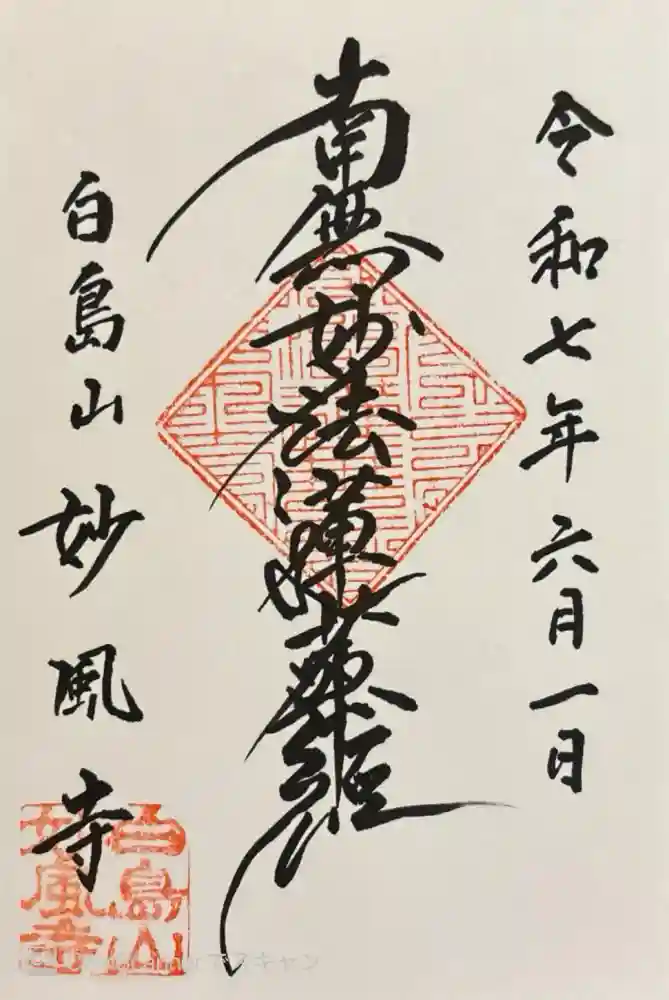 令和七年六月一日
南無妙法蓮華経
白島山 妙風寺
白島山
妙風寺